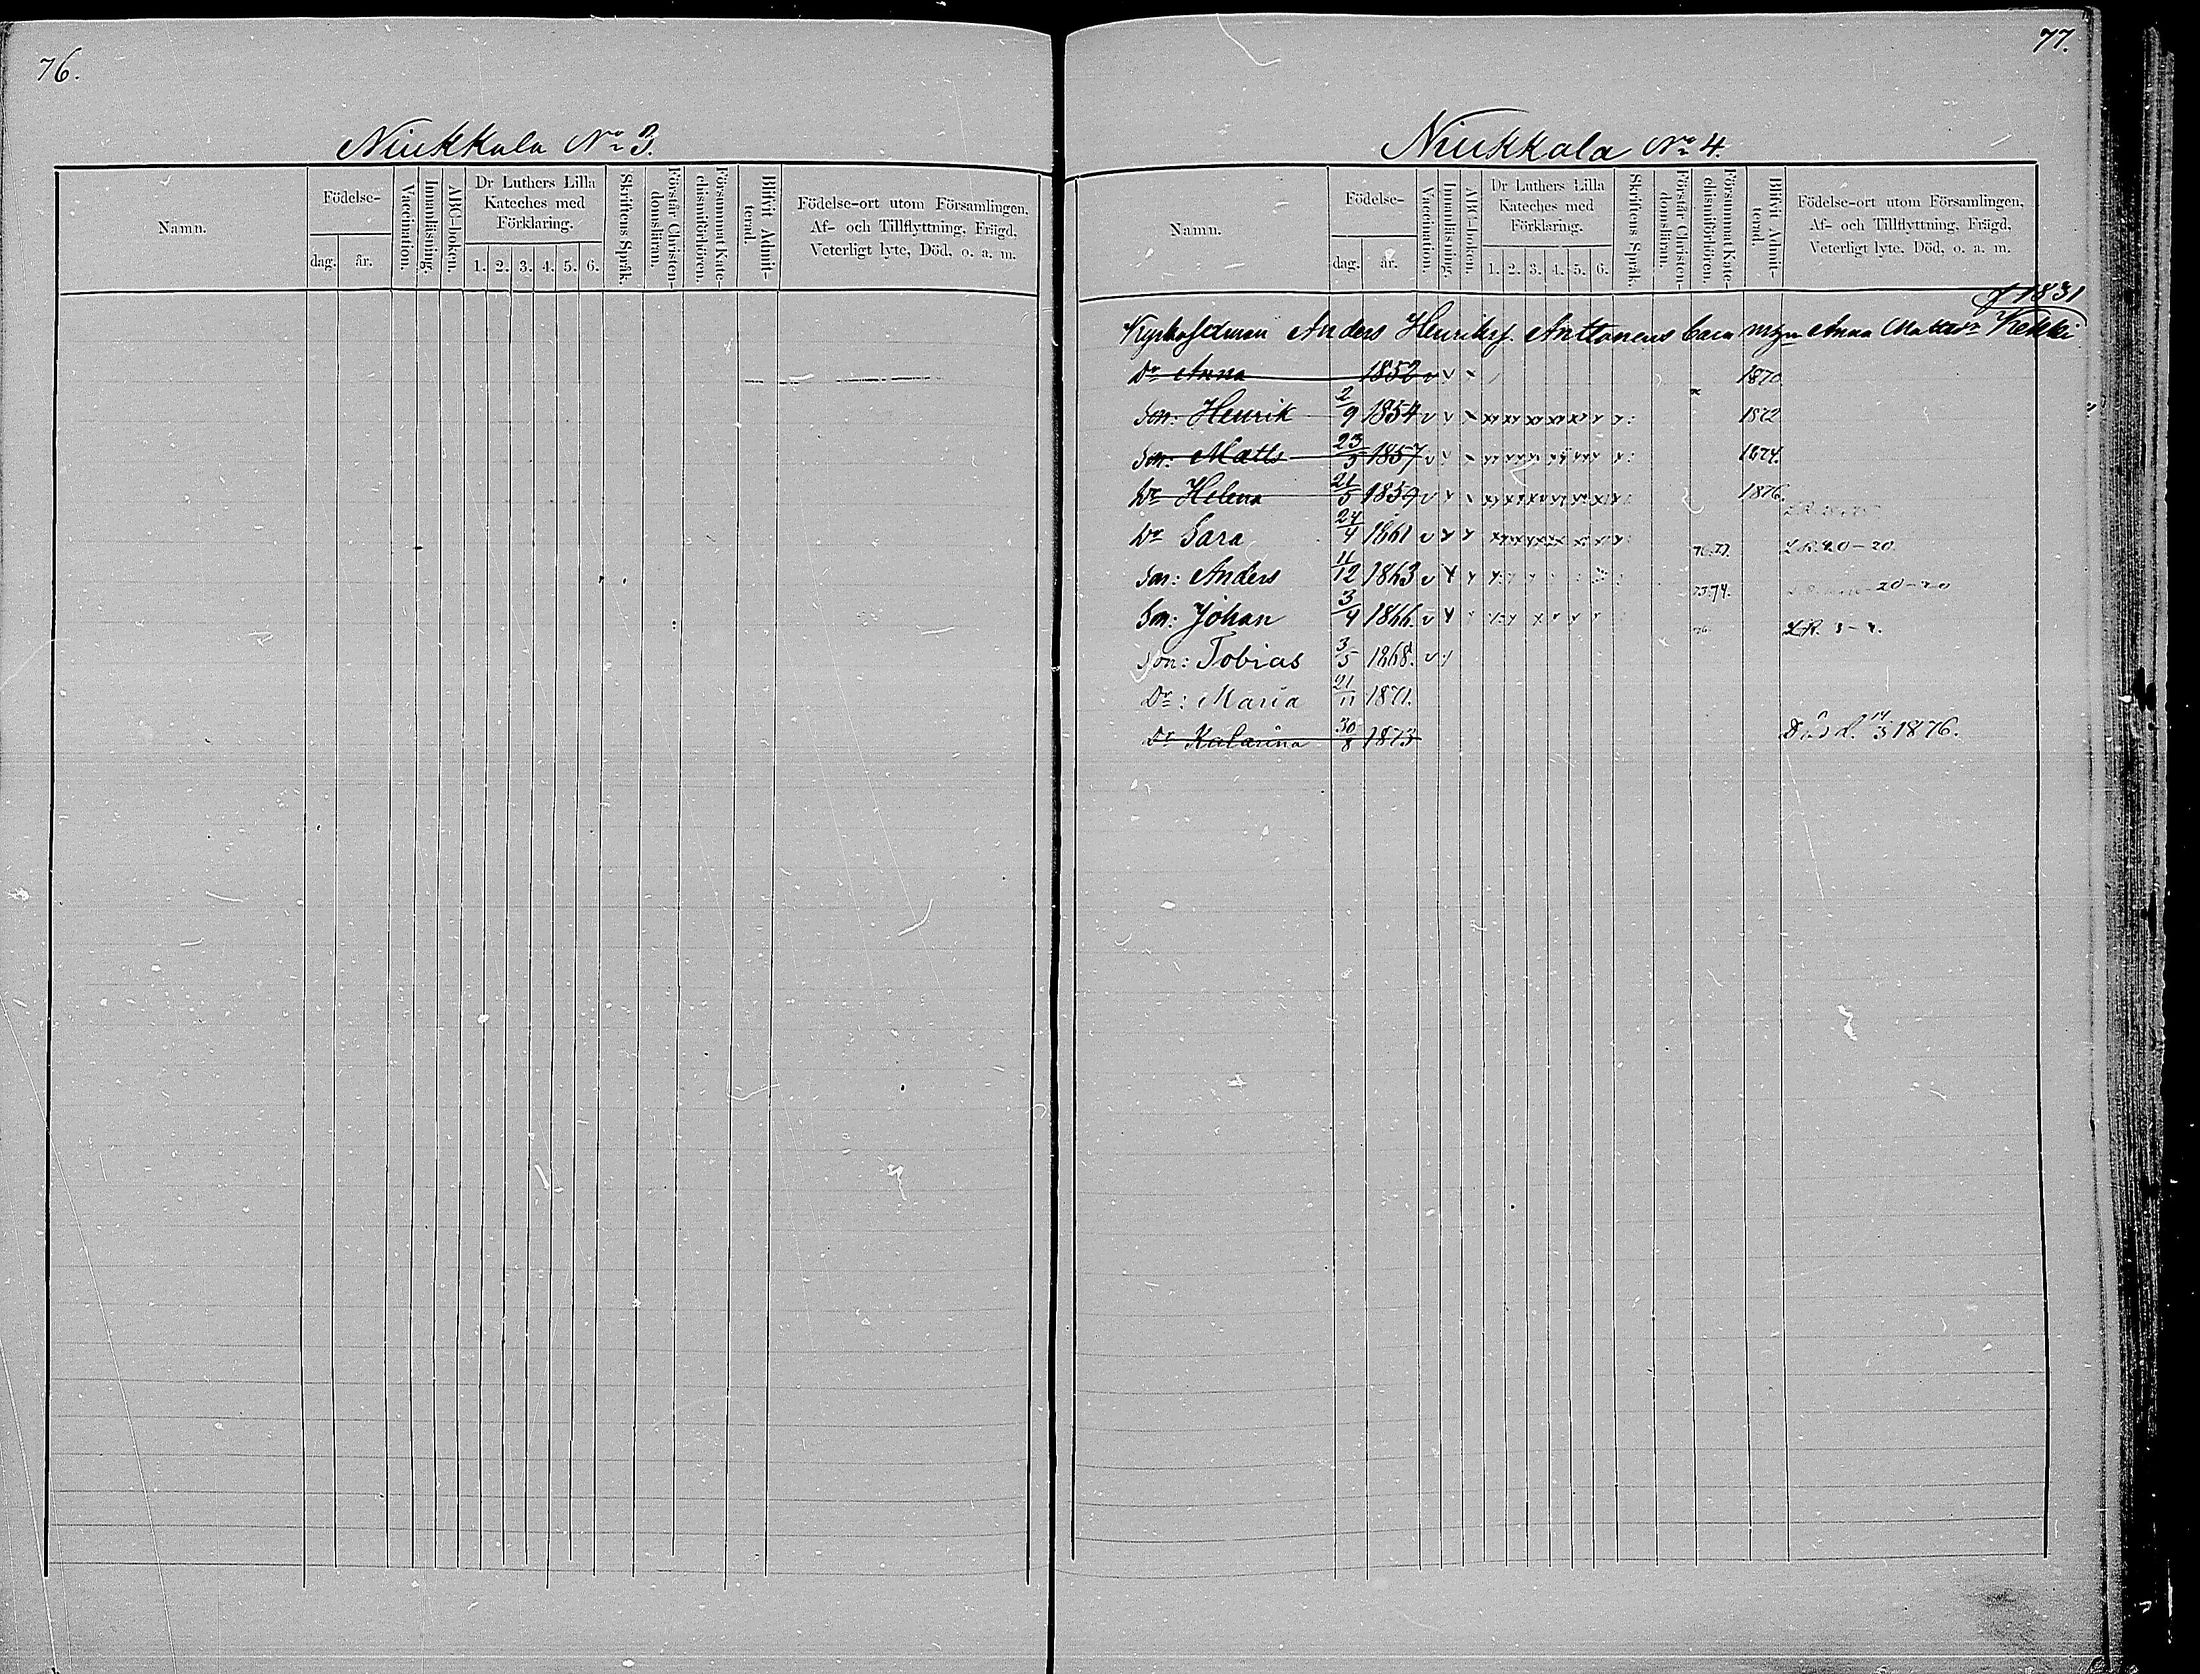 76.
Niukkala No 3.
Namn.
Födelse-
dag.
år.
Vaccination.
Innanläsning.
ABC-boken.
Dr Luthers Lilla
Kateches med
Förklaring.
1. 2. 3. 4. 5. 6.
Skriftens Språk.
Förstår Christen-
domslären.
Försummat Kate-
chismiförhören.
Blifvit Admit-
terad.
Födelse-ort utom Församlingen,
Af- och Tillflyttning, Frägd,
Veterligt lyte, Död, o. a. m.
77.
Niukkala No 4.
Namn.
Födelse-
dag.
år.
Vaccination.
Innanläsning.
ABC-boken.
Dr Luthers Lilla
Kateches med
Förklaring.
1. 2. 3. 4. 5. 6.
Skriftens Språk.
Förstår Christen-
domslären.
Försummat Kate-
chismiförhören.
Blifvit Admit-
terad.
Födelse-ort utom Församlingen,
Af- och Tillflyttning, Frägd,
Veterligt lyte, Död, o. a. m.
1831
Anders Henriks. Anttonens Anna
Dr Anna 1852 v v x 1870
Son: Henrik 2/9 1854 v v x 1872
Son: Matts 23/3 1857 v v x 1874.
Dr Helena 21/5 1859 v v 1876.
Dr Sara 24/4 1861 v 76.77. L.R. 20-20.
Son: Anders 11/12 1863 v 73.74. 20-20
Son: Johan 3/4 1866. v 76. L.R.
Son: Tobias 3/5 1868. v
Dr: Maria 21/11 1871.
Dr Katarina 30/8 1873 Död. 14/3 1876.